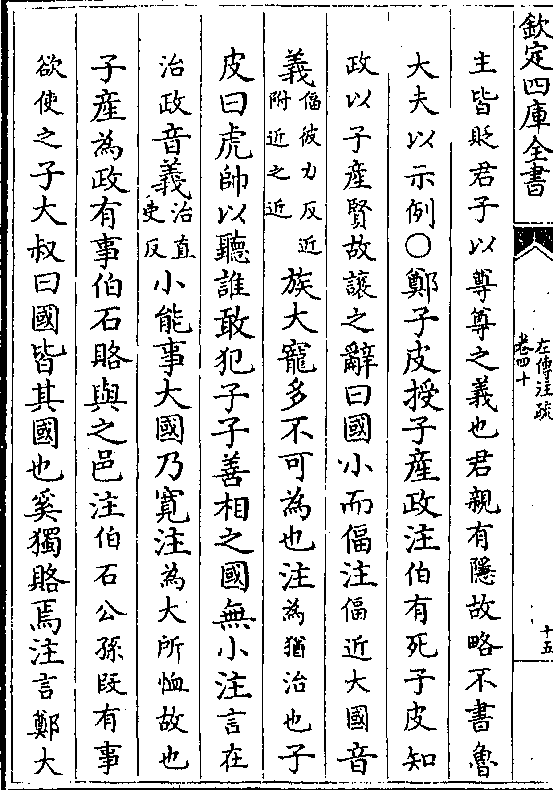 欽定四庫全書
左傳注疏
卷四十
十五
主皆貶君子以尊尊之義也君親有隱故略不書魯
大夫以示例○鄭子皮授子產政注伯有死子皮知
政以子產賢故讓之辭曰國小而偪注偪近大國音
義偪彼力反近附近之近族大寵多不可為也注為猶治也子
皮曰虎帥以聽誰敢犯子子善相之國無小注言在
治政音義治直吏反小能事大國乃寬注為大所恤故也
子產為政有事伯石賂與之邑注伯石公孫段有事
欲使之子大叔曰國皆其國也奚獨賂焉注言鄭大